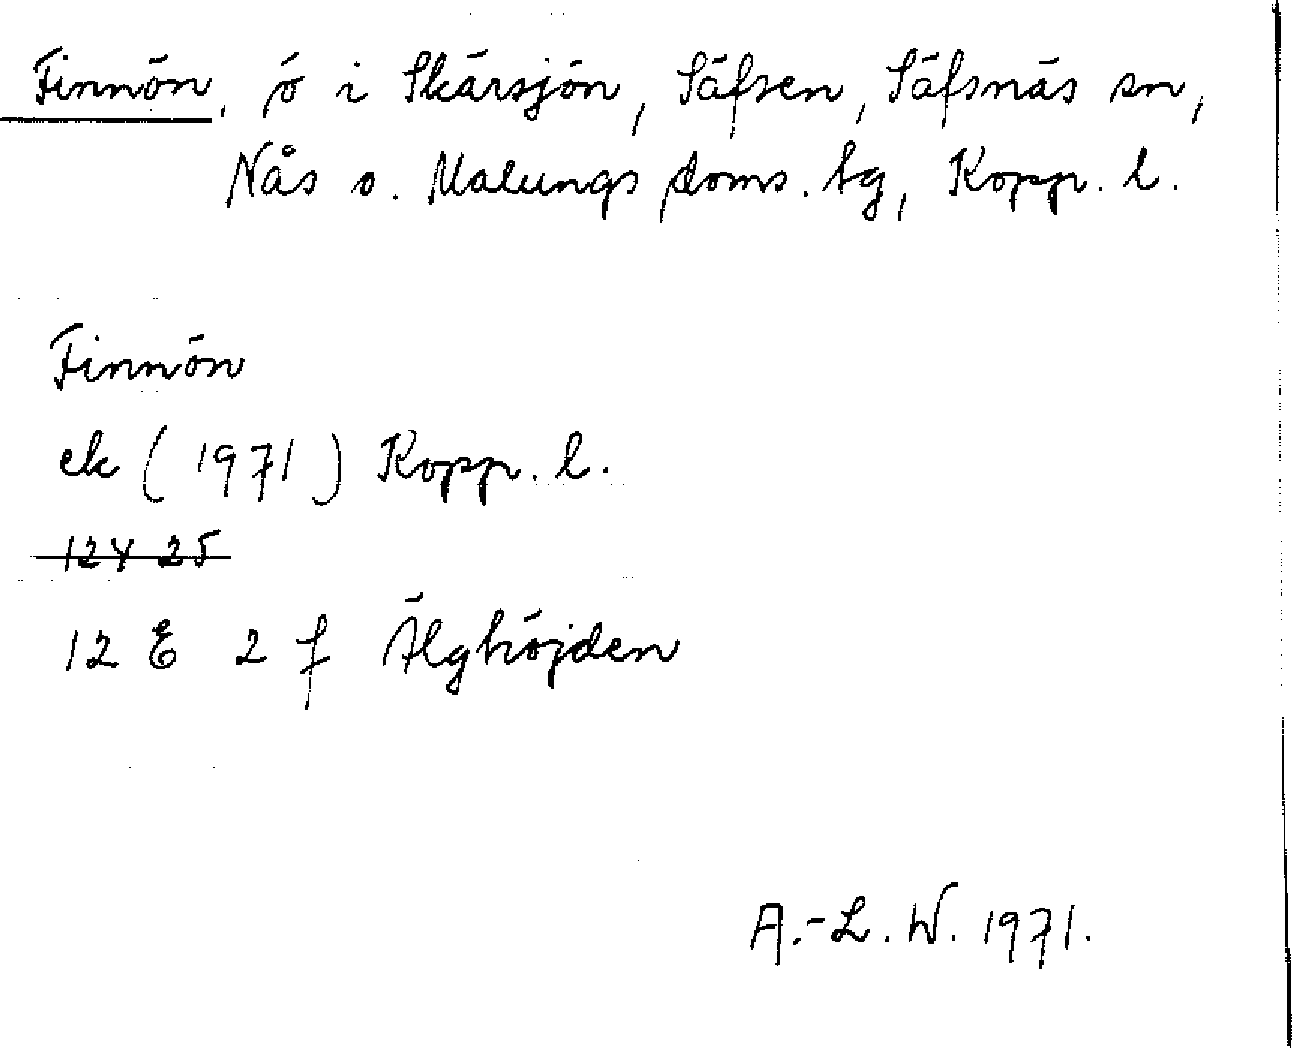 Finnön, ö i Skärsjön, Säfsen, Säfsnäs sn,
Nås o. Malungs doms. tg, Kopp. l.
Finnön
ek (1971) Kopp. l.
12Y 25
12 E 2 f Älghöjden
A.-L. W. 1971.